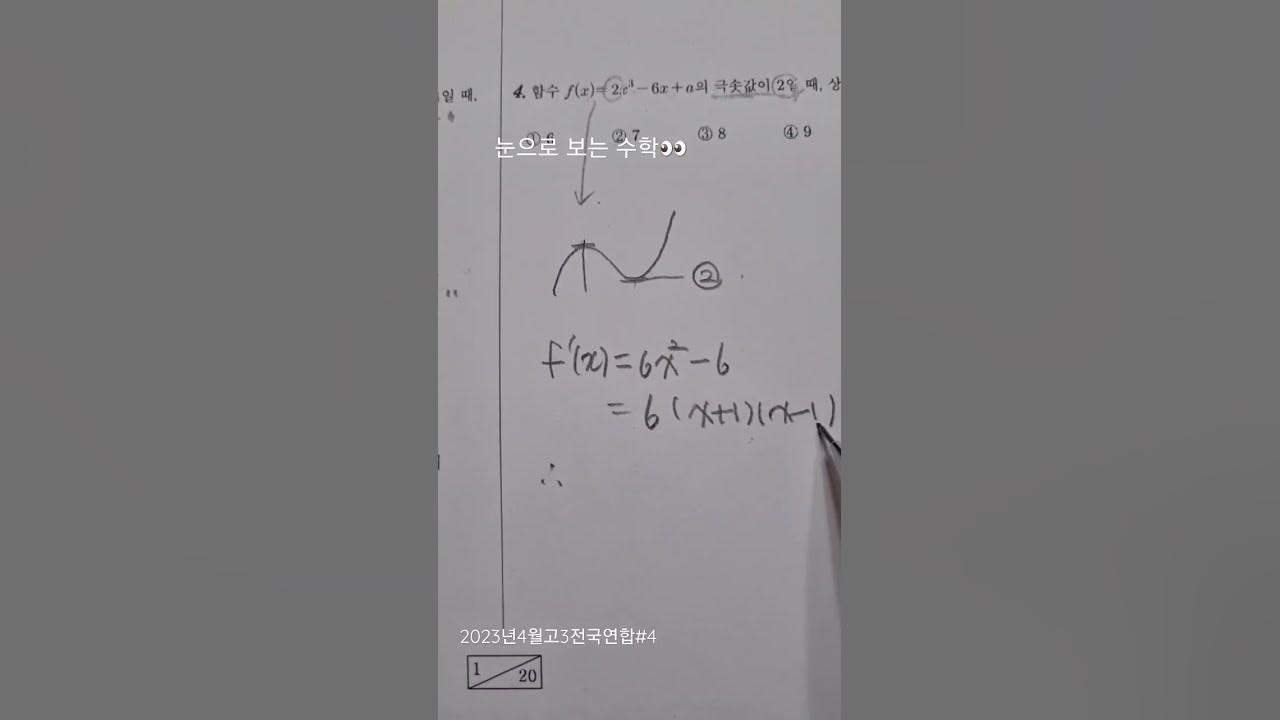 일 때,
4. 함수 f(x)=2x³-6x+a의 극솟값이 2일 때, 상
① 6 ② 7 ③ 8 ④ 9
눈으로 보는 수학👀
②
f'(x)=6x²-6
=6(x+1)(x-1)
∴
2023년4월고3전국연합#4
1 20